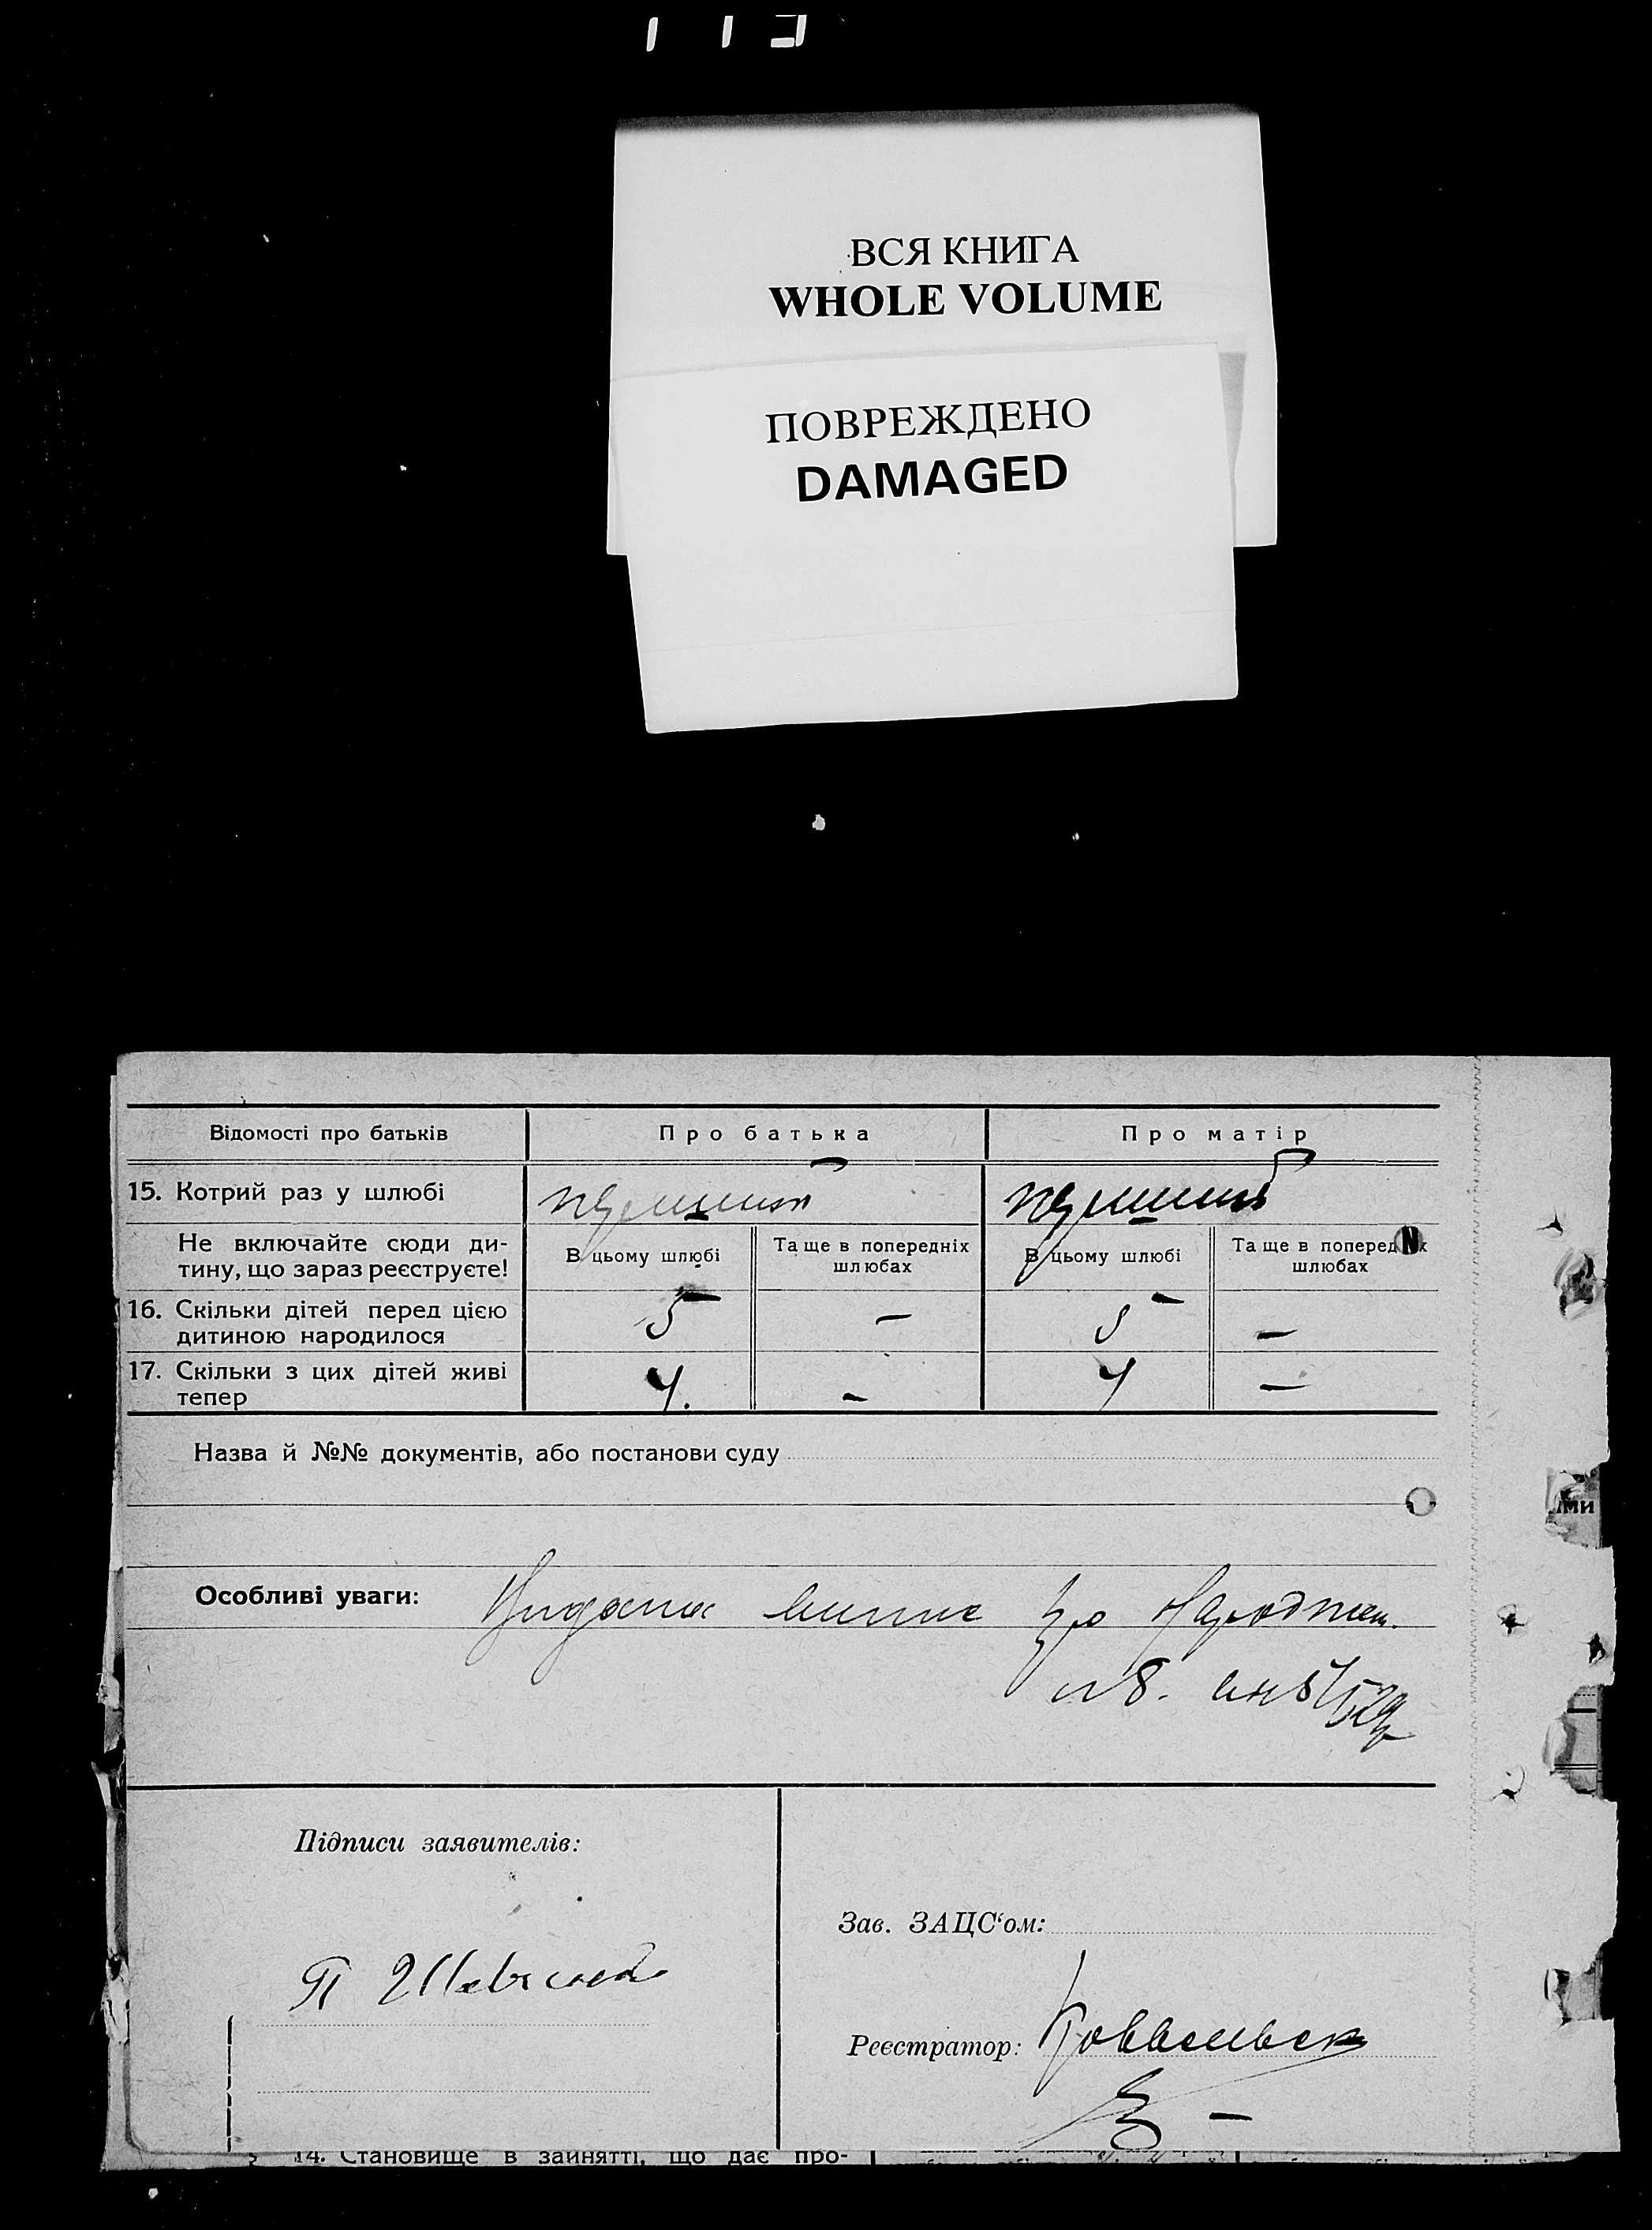 ВСЯ КНИГА
WHOLE VOLUME
ПОВРЕЖДЕНО
DAMAGED
Відомості про батьків
Про батька
Про матір
15. Котрий раз у шлюбі
Не включайте сюди ди-
тину, що зараз реєструєте!
В цьому шлюбі
Та ще в попередніх
шлюбах
В цьому шлюбі
Та ще в поперед х
шлюбах
16. Скільки дітей перед цією
дитиною народилося
5
–
5
–
17. Скільки з цих дітей живі
тепер
4.
–
4
–
Назва й №№ документів, або постанови суду
ми
Особливі уваги:
про Народжен.
№8.
Підписи заявителів:
Зав. ЗАЦС‘ом:
П
Реєстратор:
14. Становище в занятті, що дає про-